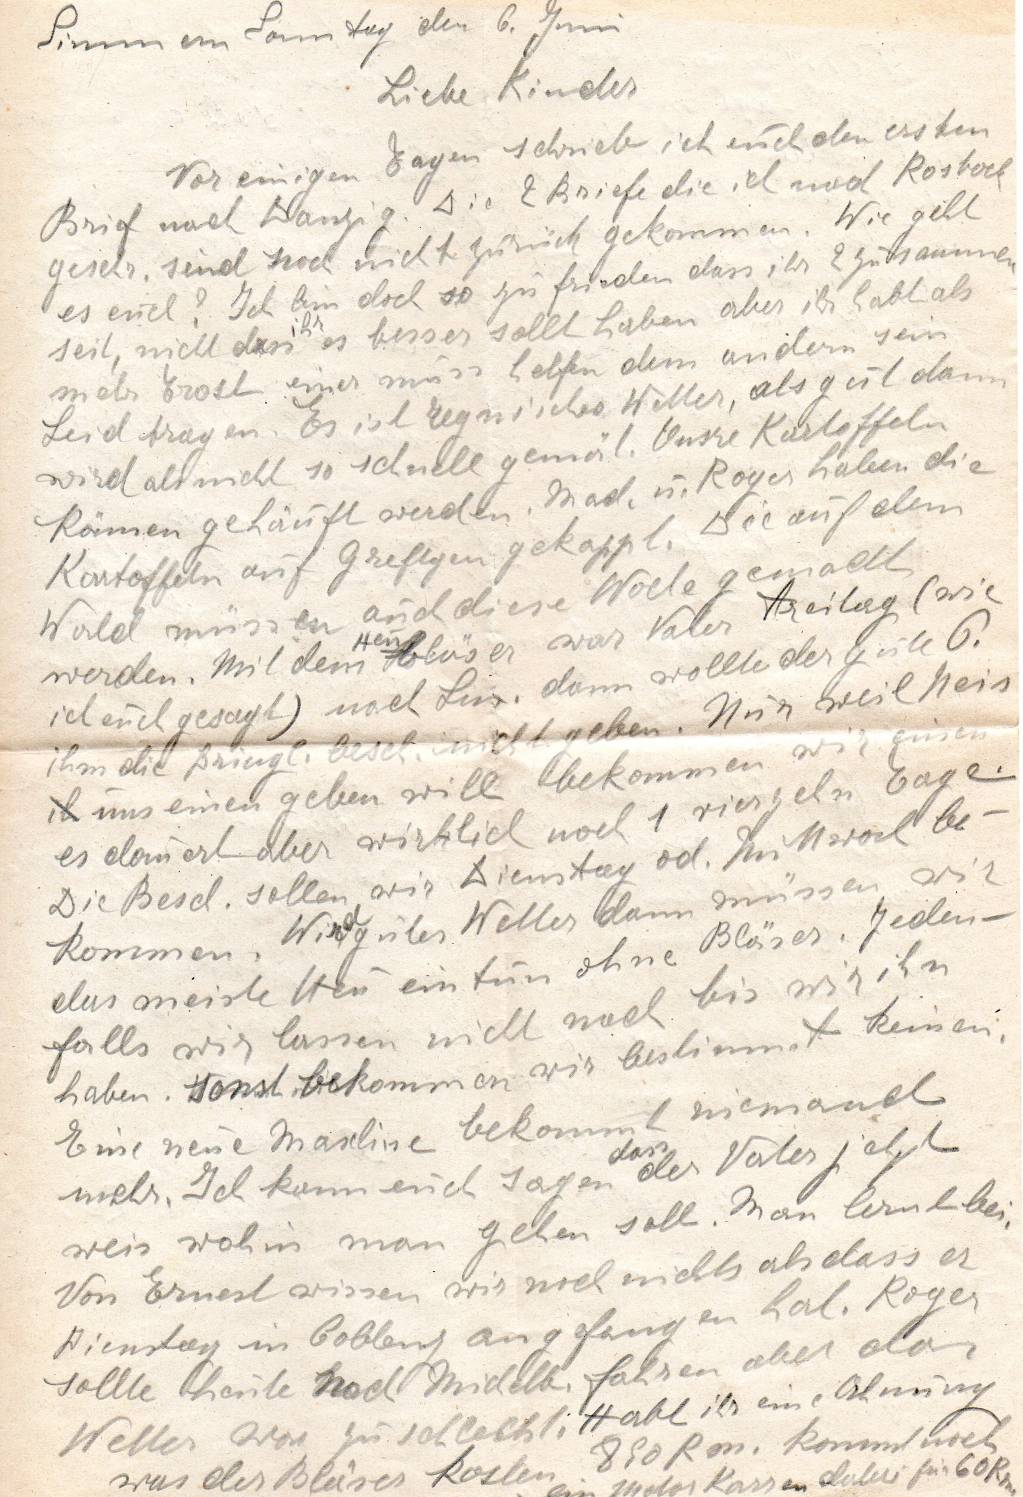 Simmern Sonntag den 6. Juni
Liebe Kinder
Vor einigen Tagen schrieb ich euch den ersten
Brief nach Danzig. Die 2 Briefe die ich nach Rostock
geschr. sind noch nicht zurück gekommen. Wie geht
es euch? Ich bin doch so zufrieden dass ihr 2 zusammen
seit, nicht dass ihr es besser sollt haben aber ihr habt als
mehr Trost einer muss helfen dem andern sein
Leid tragen. Es ist regnisches Wetter, als gut dann
wird als nicht so schnell gemät. Unsre Kartoffeln
können gehäuft werden. Mad. u. Roger haben die
Kartoffeln auf Greftgen gekappt. Die auf dem
Wald müssen auch diese Woche gemacht
werden. Mit dem Heubläser war Vater Freitag (wie
ich euch gesagt) nach Lux. dann wollte der gute P.
ihm die Dringl. besch. nicht geben. Nur weil Neis
uns einen geben will bekommen wir einen
es dauert aber wirklich noch 1 vierzehn Tage.
Die Besch. sollen wir Dienstag od. Mittwoch be-
kommen. Wird guter Wetter dann müssen wir
das meiste Heu eintun ohne Bläser. Jeden-
falls wir lassen nicht nach bis wir ihn
haben. Sonst bekommen wir bestimmt keinen.
Eine neue Maschine bekommt niemand
mehr. Ich kann euch sagen dass der Vater jetzt
weis wohin man gehen soll. Man lernt bei.
Von Ernest wissen wir noch nichts als dass er
Dienstag in Coblenz angefangen hat. Roger
sollte heute nach Midelb. fahren aber das
Wetter war zu schlecht. Habt ihr eine Ahnung
was der Bläser kosten 850 Rm. kommt noch
ein Motor Karren dabei für 60 Rm